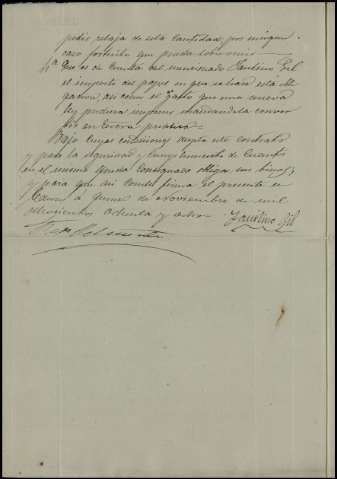 pedir rebaja de esta cantidad por ningun
caso fortuito que pueda sobrevenir.
4ª Que es de cuenta del mencionado Faustino Gil
el importe del papel en que se estienda
asi como el gasto que una nueva
ley pudiera mandandola conver
tir en Escra publica.
Bajo cuyas condiciones acepta este contrato
y para la seguridad y cumplimiento de cuanto
en el mismo queda consignado obliga sus bienes
y para que asi conste firma el presente en
a de Noviembre de mil
ochocientos ochenta y ocho.
Faustino Gil